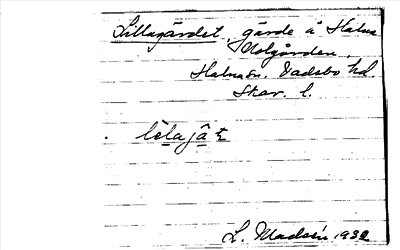 Lillagärdet, gärde å Halna
Molgården,
Halna sn. Vadsbo hd.
Skar. l.
lělajât
L. Madsén 1932